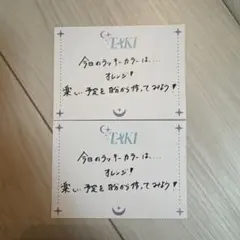 TAKI
今日のラッキーカラーは....
オレンジ!
楽しい予定を自分から作ってみよう!
TAKI
今日のラッキーカラーは....
オレンジ!
楽しい予定を自分から作ってみよう!